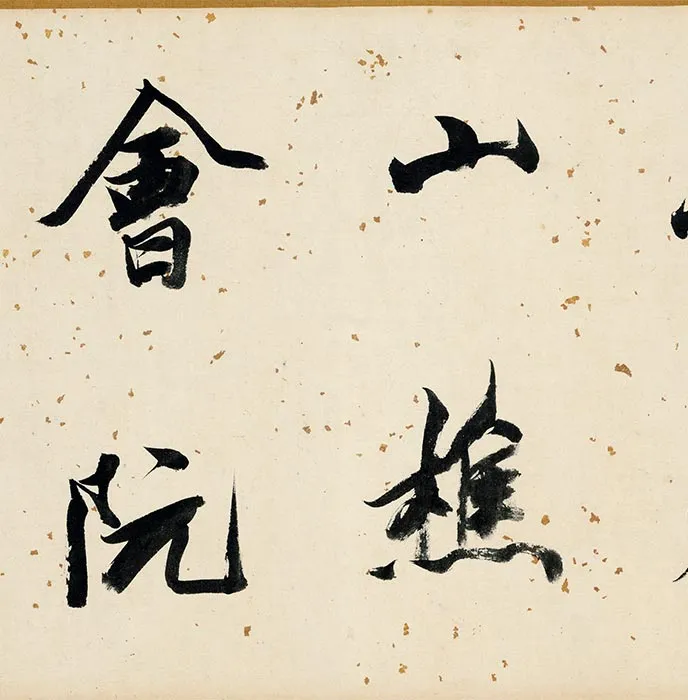 山樵
會阮